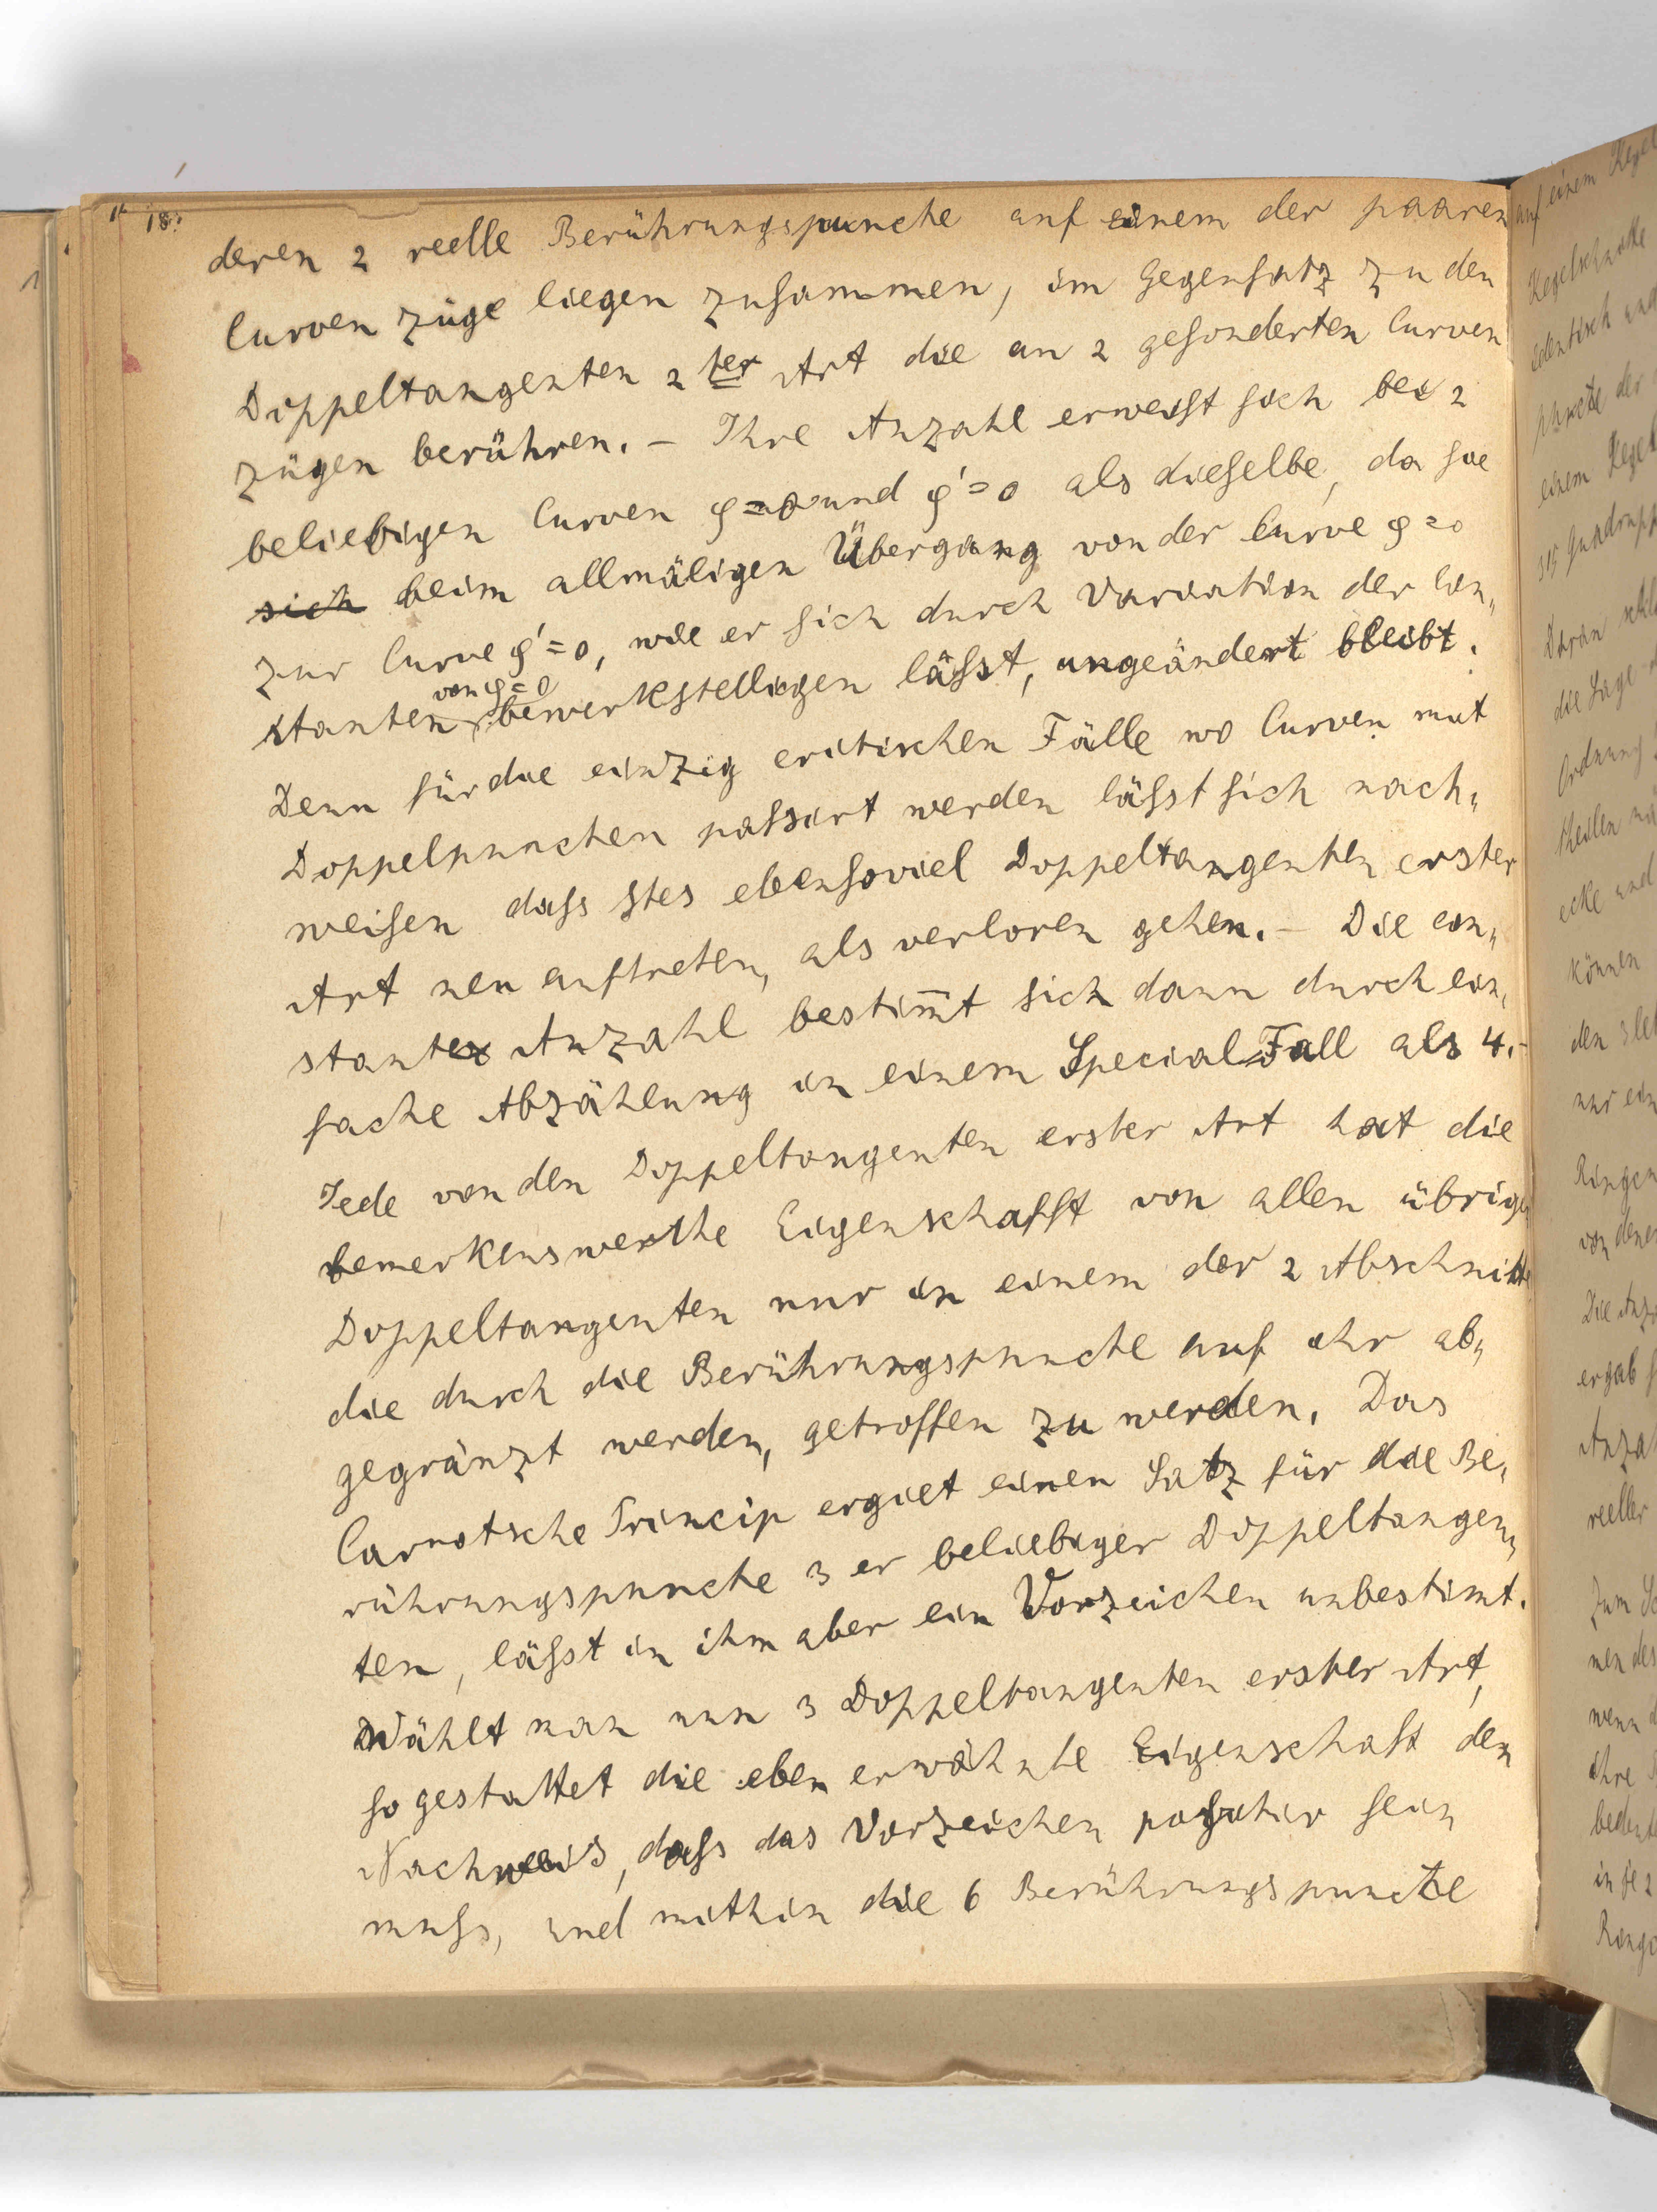 18.
deren 2 reelle Berührungspuncte auf einem der paaren
Curven züge liegen zusammen, im Gegensatz zu den
Doppeltangenten 2ter Art die an 2 gesonderten Curven
zügen berühren. – Ihre Anzahl erweist sich bei 2
beliebigen Curven φ=0 und φ'=0 als dieselbe, da sie
sich beim allmäligen Übergang von der Curve φ=0
zur Curve φ'=0, wie er sich durch Variation der Con„
von φ=0
stanten bewerkstelligen lässt, ungeändert bleibt.
Denn für die einzig critischen Fälle wo Curven mit
Doppelpuncten passirt werden lässt sich nach„
weisen dass stes ebensoviel Doppeltangenten erster
Art neu auftreten, als verloren gehen. – Die con„
stante Anzahl bestim̅t sich dann durch ein„
fache Abzählung in einem Special-Fall als 4. –
Jede von den Doppeltangenten erster Art hat die
bemerkenswerthe Eigenschafft von allen übrigen
Doppeltangenten nur in einem der 2 Abschnitte
die durch die Berührungspuncte auf ihr ab„
gegränzt werden, getroffen zu werden. Das
Carnotsche Princip ergiet einen Satz für die Be„
rührungspuncte 3 er beliebiger Doppeltangen„
ten, lässt in ihm aber ein Vorzeichen unbestimt.
Wählt man nun 3 Doppeltangenten erster Art,
so gestattet die eben erwähnte Eigenschaft den
Nachweis, dass das Vorzeichen positiv sein
muss, und mithin die 6 Berührungspuncte
auf einem Kegel
Kegelschnitte
identisch und
puncte der
einem Kegel
315 Quadrupel
die Lage
Ordnung
theilen
ecke und
können
den
nur ein
Ringen
von denen
Die Anza
ergab
Anzah
reeller
Zum
nen des
wenn
ihre
bedeut
in je 2